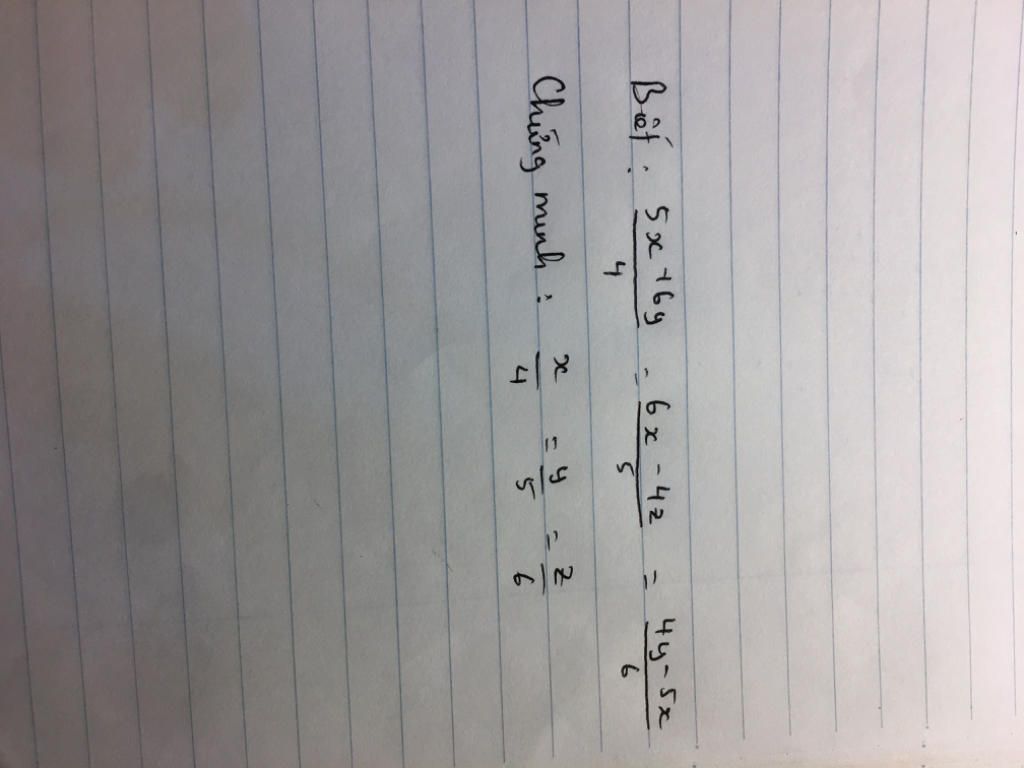 Biết : 5x+6y/4 = 6x-4z/5 = 4y-5x/6
Chứng minh : x/4 = y/5 = z/6